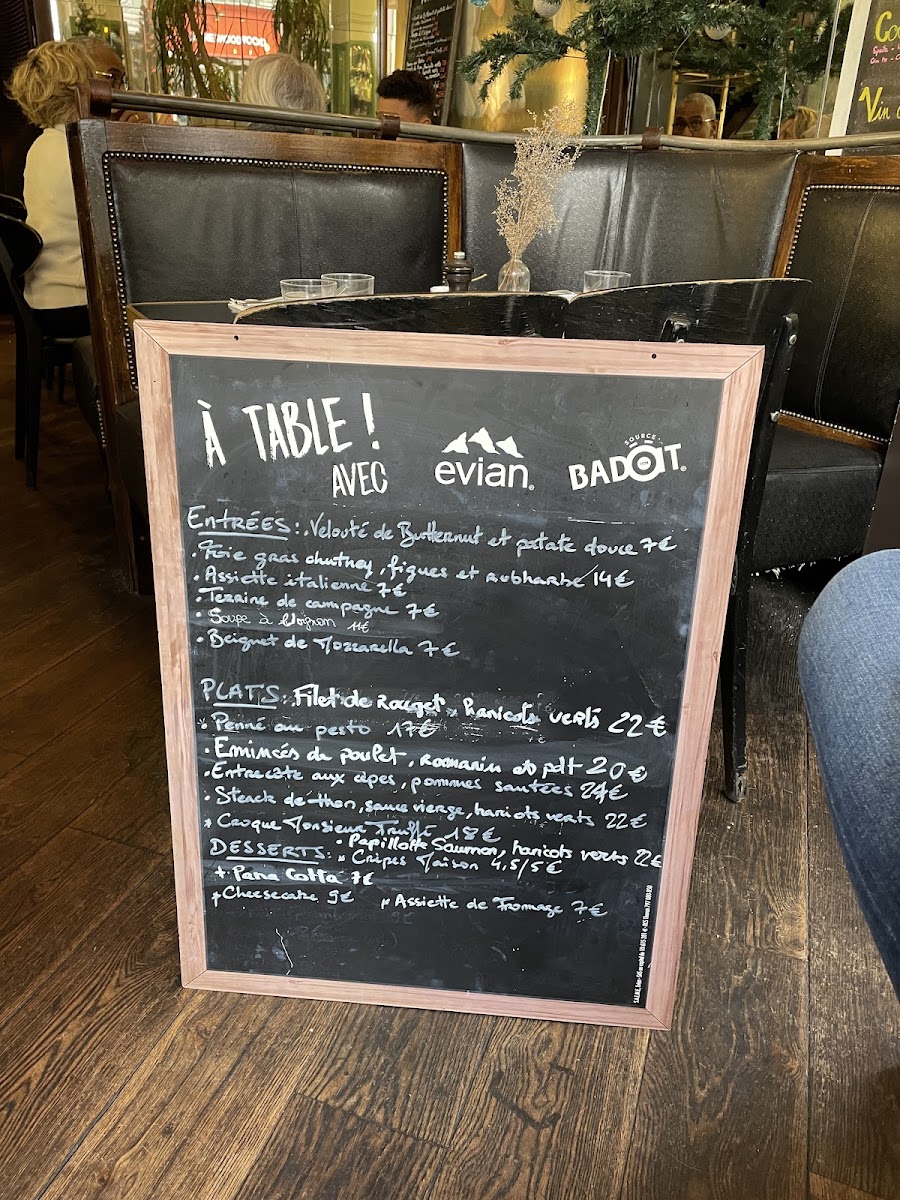 À TABLE !
AVEC
evian®
SOURCE
BADOIT®
ENTRÉES : . Velouté de Butternut et patate douce 7€
. Foie gras chutney, figues et rubharbe 14€
. Assiette italienne 7€
. Terrine de campagne 7€
. Soupe à l'oignon 11€
. Beignet de Mozzarella 7€
PLATS : . Filet de Rouget, haricots verts 22€
. Penné au pesto 17€
. Emincés du poulet, romarin et pdt 20€
. Entrecôte aux cèpes, pommes sautées 24€
. Steack de thon, sauce vierge, haricots verts 22€
* Croque Monsieur Truffé 18€
. Papillotte Saumon, haricots verts 22€
DESSERTS : * Crêpes Maison 4,5/5€
+ Pana Cotta 7€
* Cheesecake 9€ * Assiette de Fromage 7€
Vin